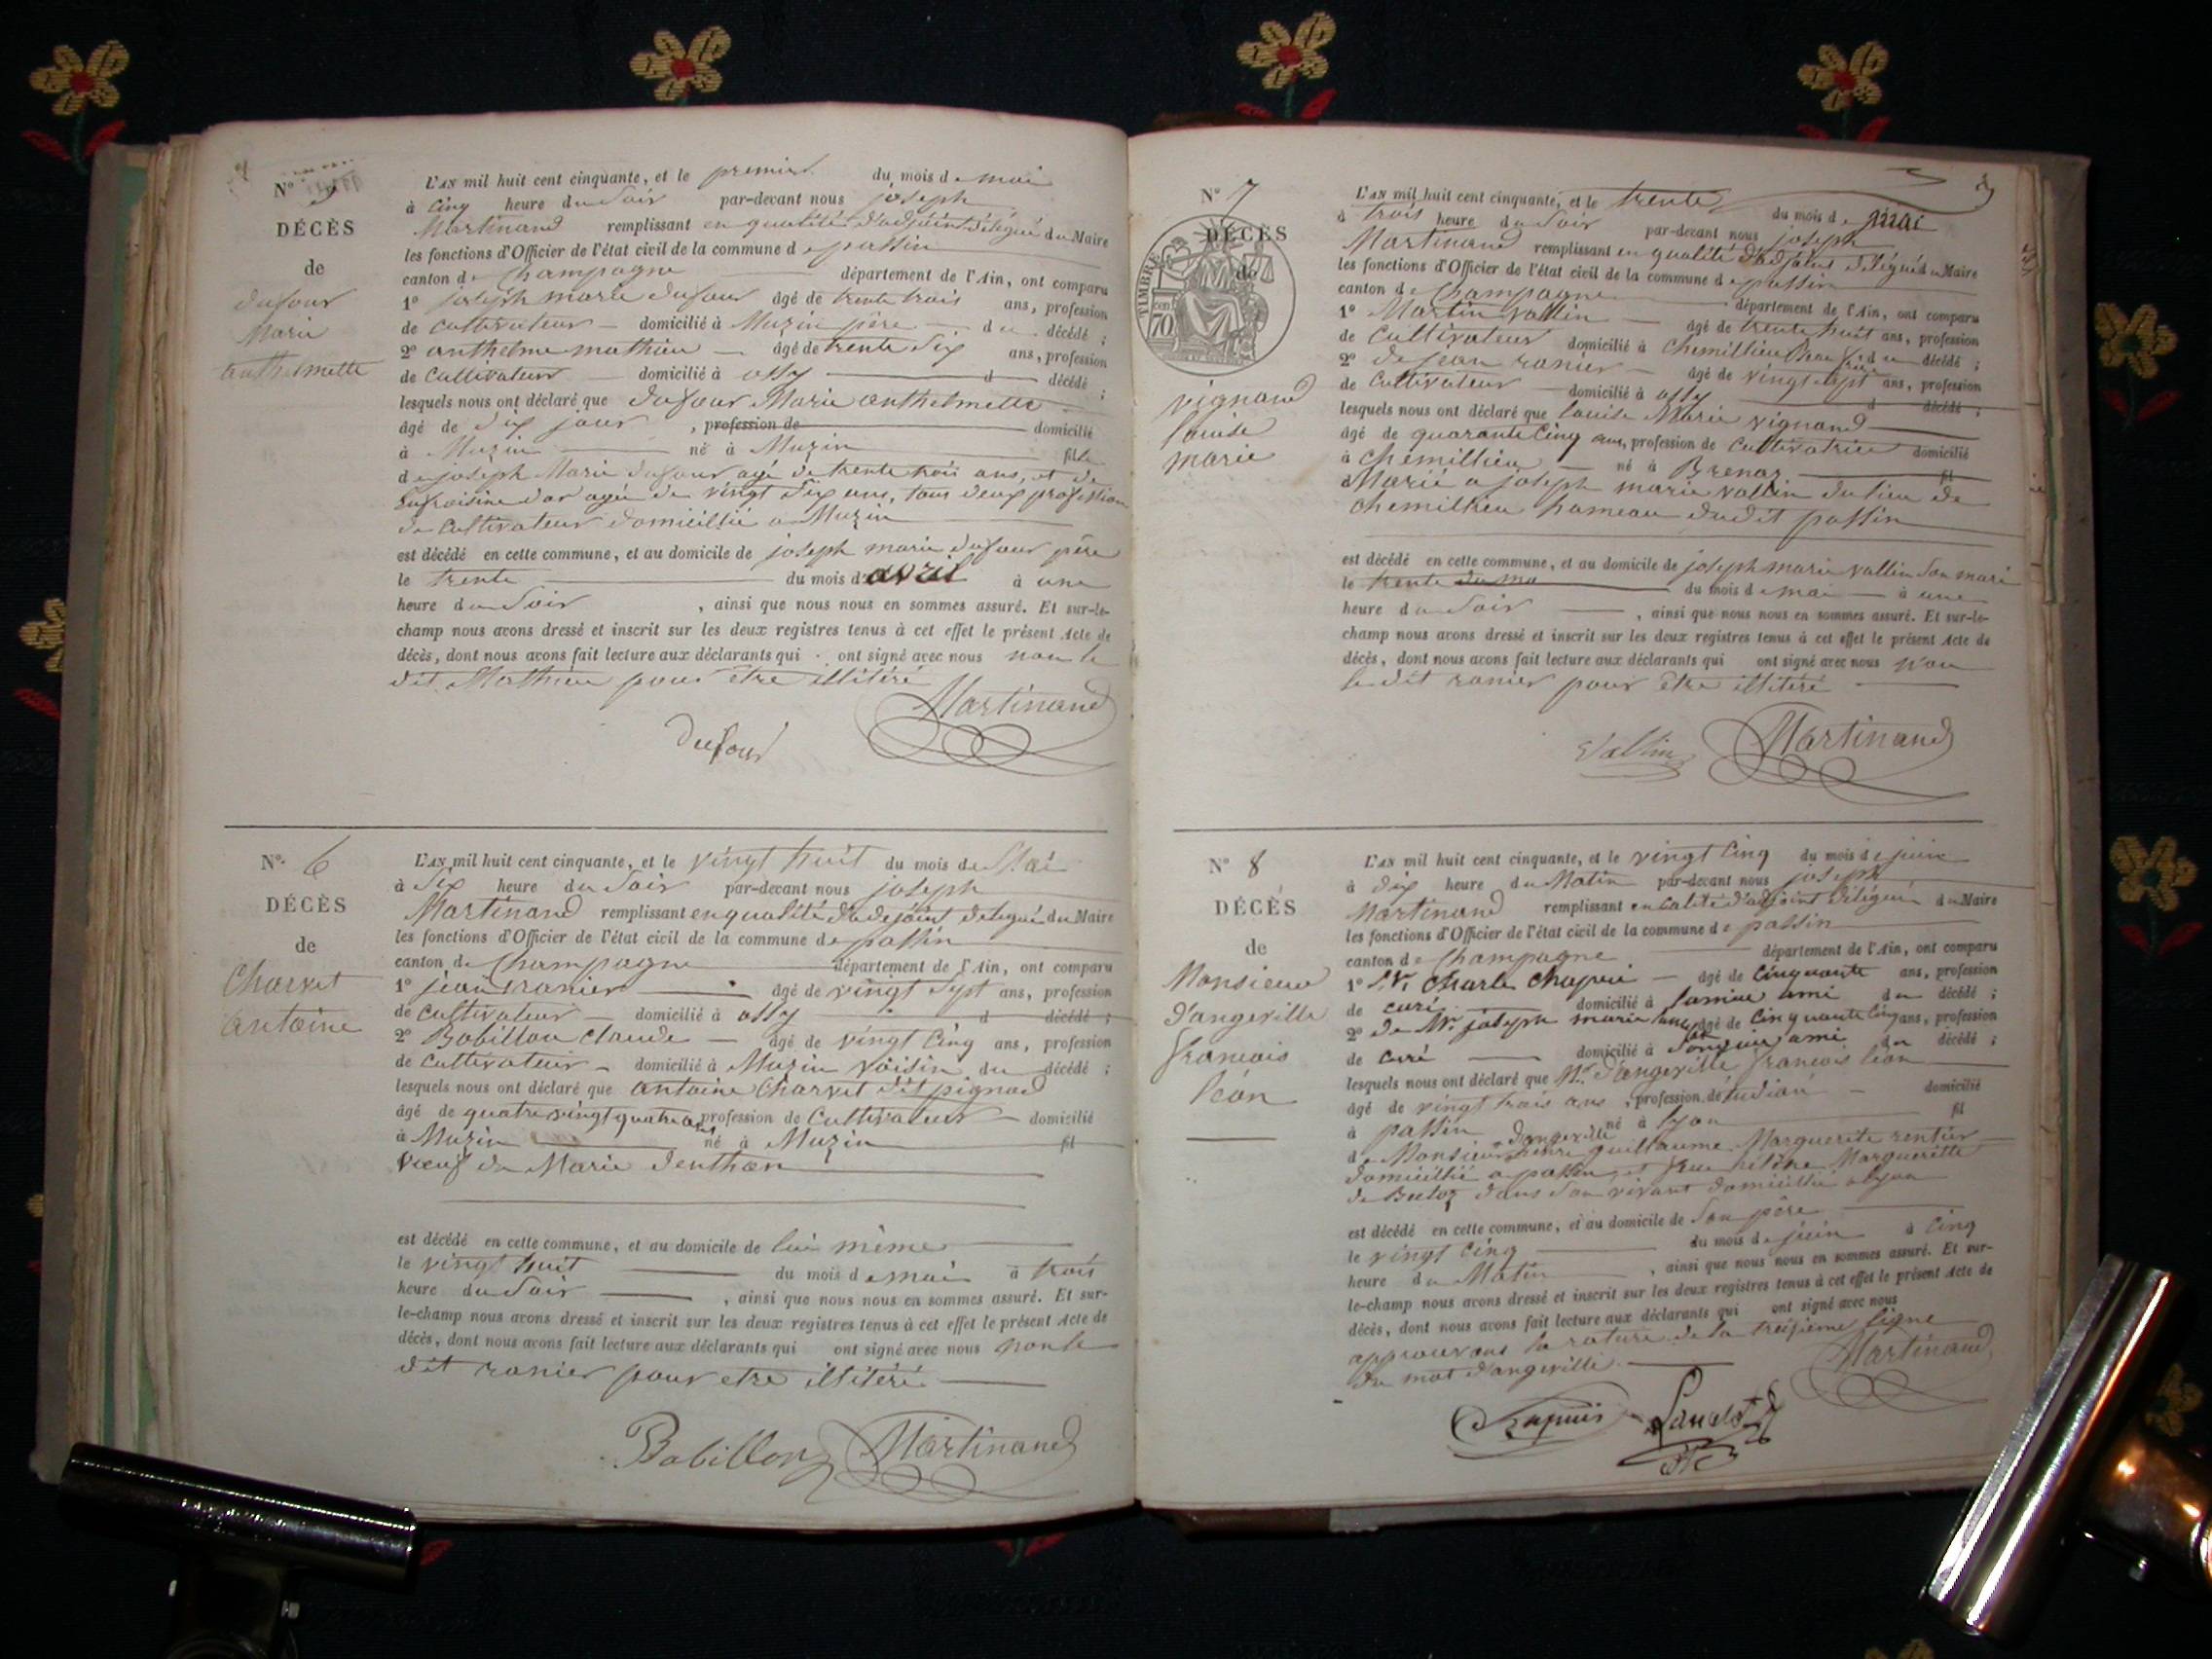 N° 5
DÉCÈS
de
dufour
Marie
anthelmette
L'AN mil huit cent cinquante, et le premier du mois de mai
à cinq heure du soir par-devant nous joseph
Martinand remplissant en qualité d'adjoint délégué du Maire
les fonctions d'Officier de l'état civil de la commune de passin
canton de Champagne département de l'Ain, ont comparu
1° joseph marie dufour âgé de trente trois ans, profession
de cultivateur domicilié à Muzin père du décédé ;
2° anthelme mathieu âgé de trente six ans, profession
de cultivateur domicilié à ossy d décédé ;
lesquels nous ont déclaré que dufour Marie anthelmette
âgé de dix jour , profession de domicilié
à Muzin né à Muzin fille
de joseph Marie dufour agé de trente trois ans, et de
agée de vingt six ans, tous deux profession
de cultivateur domicillié a Muzin
est décédé en cette commune, et au domicile de joseph marie dufour père
le trente du mois d'avril à une
heure du soir , ainsi que nous nous en sommes assuré. Et sur-le-
champ nous avons dressé et inscrit sur les deux registres tenus à cet effet le présent Acte de
décès, dont nous avons fait lecture aux déclarants qui ont signé avec nous non le
dit Mathieu pour être illitéré
Martinand
Dufour
N° 6
DÉCÈS
de
Charvet
antoine
L'AN mil huit cent cinquante, et le vingt huit du mois de Mai
à six heure du soir par-devant nous joseph
Martinand remplissant en qualité d'adejoint delegué du Maire
les fonctions d'Officier de l'état civil de la commune de passin
canton de Champagne département de l'Ain, ont comparu
1° jean ranier âgé de vingt sept ans, profession
de cultivateur domicilié à ossy d décédé ;
2° Bobillon claude âgé de vingt cinq ans, profession
de cultivateur domicilié à Muzin voisin du décédé ;
lesquels nous ont déclaré que antoine Charvet dit pignad
âgé de quatre vingt quatre ans profession de Cultivateur domicilié
à Muzin né à Muzin fil
vœuf de Marie denthan
est décédé en cette commune, et au domicile de lui même
le vingt huit du mois de mai à trois
heure du soir , ainsi que nous nous en sommes assuré. Et sur-
le-champ nous avons dressé et inscrit sur les deux registres tenus à cet effet le présent Acte de
décès, dont nous avons fait lecture aux déclarants qui ont signé avec nous non le
dit ranier pour etre illitéré
Bobillon Martinand
3
N° 7
DÉCÈS
de
TIMBRE
70
vignand
louise
marie
L'AN mil huit cent cinquante, et le trente du mois de mai
à trois heure du soir par-devant nous joseph
Martinand remplissant en qualité d'adjoint délégué du Maire
les fonctions d'Officier de l'état civil de la commune de passin
canton de Champagne département de l'Ain, ont comparu
1° Martin vallin âgé de trente huit ans, profession
de cultivateur domicilié à chemillieu Beau frère du décédé ;
2° de jean ranier âgé de vingt sept ans, profession
de cultivateur domicilié à ossy d décédé ;
lesquels nous ont déclaré que louise Marie vignand
âgé de quarante cinq ans, profession de cultivatrice domicilié
à chemillieu né à Brenaz fil
Marié a joseph marie vallin du lieu de
chemillieu hameau dudit passin
est décédé en cette commune, et au domicile de joseph marie vallin son mari
le trente du ma du mois de mai à une
heure du soir , ainsi que nous nous en sommes assuré. Et sur-le-
champ nous avons dressé et inscrit sur les deux registres tenus à cet effet le présent Acte de
décès, dont nous avons fait lecture aux déclarants qui ont signé avec nous non
le dit ranier pour être illitéré
Vallin Martinand
N° 8
DÉCÈS
de
Monsieur
d'angeville
francois
léon
L'AN mil huit cent cinquante, et le vingt cinq du mois de juin
à dix heure du Matin par-devant nous joseph
Martinand remplissant en calité d'adjoint délégué du Maire
les fonctions d'Officier de l'état civil de la commune de passin
canton de Champagne département de l'Ain, ont comparu
1° Mr Charle Chapui âgé de cinquante ans, profession
de curé domicilié à lonieu ami du décédé ;
2° de Mr joseph marie âgé de cinquante cinq ans, profession
de curé domicilié à ami du décédé ;
lesquels nous ont déclaré que Mr d'angeville francois léon
âgé de vingt trois ans , profession d'étudiant domicilié
à passin né à lyon fil
d'angeville
de Monsieur guillaume Marguerite rentier
domicillié a passin et hélène Margueritte
de dans son vivant domicillie a lyon
est décédé en cette commune, et au domicile de son père
le vingt cinq du mois de juin à cinq
heure du Matin , ainsi que nous nous en sommes assuré. Et sur-
le-champ nous avons dressé et inscrit sur les deux registres tenus à cet effet le présent Acte de
décès, dont nous avons fait lecture aux déclarants qui ont signé avec nous
approuvons la rature de la treisieme ligne
du mot d'angeville
Martinand
Chapuis